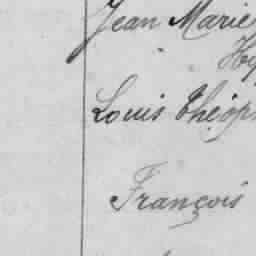 Jean Marie
Hy
Louis Théop
François